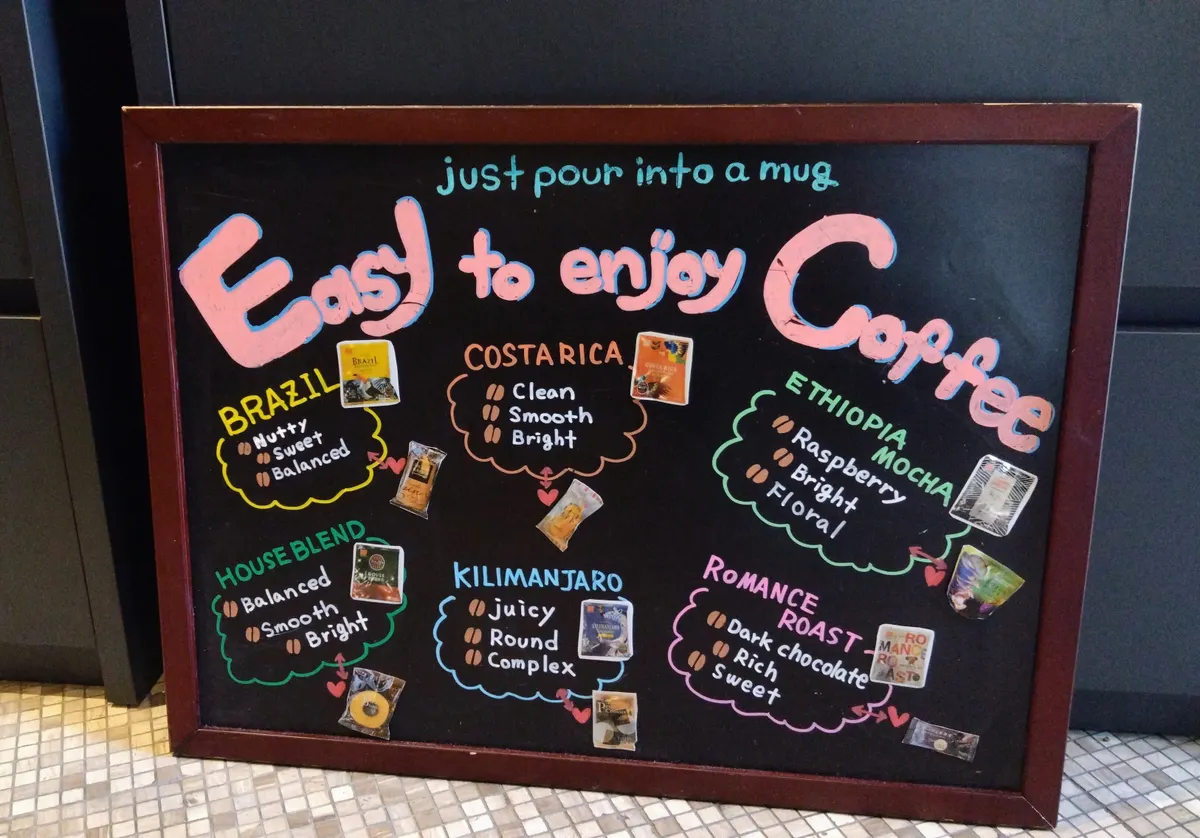 just pour into a mug
Easy to enjoy Coffee
BRAZIL
Nutty
Sweet
Balanced
BRAZIL
COSTA RICA
Clean
Smooth
Bright
ETHIOPIA
MOCHA
Raspberry
Bright
Floral
HOUSE BLEND
Balanced
Smooth
Bright
HOUSE
KILIMANJARO
juicy
Round
Complex
ROMANCE
ROAST
Dark chocolate
Rich
Sweet
RO
MANC
ROAST